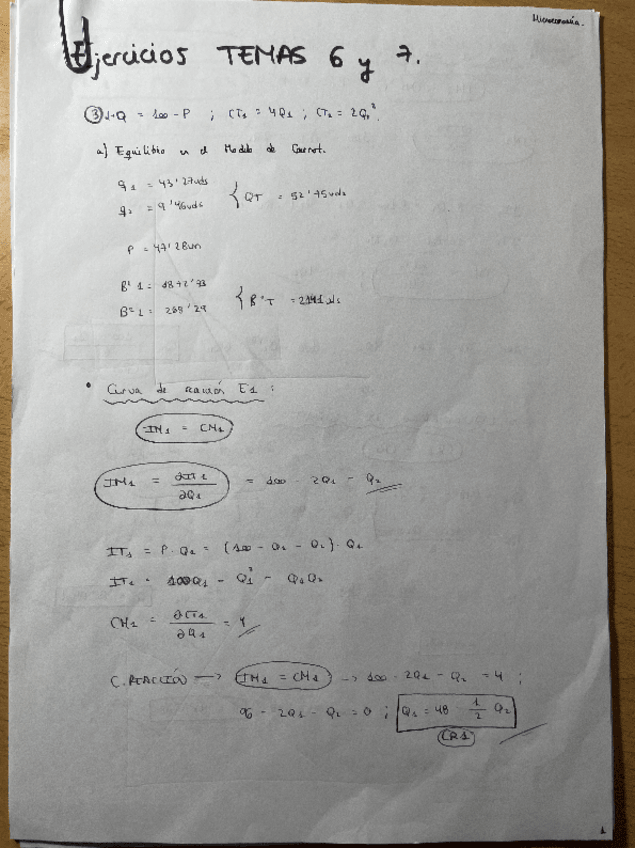 Microeconomía.
Ejercicios TEMAS 6 y 7.
③ 1. Q = 100 - P ; CT₁ = 4Q₁ ; CT₂ = 2Q₂².
a) Equilibrio en el Modelo de Cournot.
q₁ = 43'27uds
q₂ = 9'46uds { QT = 52'75uds
P = 47'28um
Bº 1 = 1872'73
Bº 2 = 269'29 { BºT = 2141 uds
• Curva de reacción E1 :
IM₁ = CM₁
IM₁ = ∂IT₁ / ∂Q₁ = 100 - 2Q₁ - Q₂
IT₁ = P · Q₁ = (100 - Q₁ - Q₂) · Q₁
IT₁ = 100Q₁ - Q₁² - Q₁Q₂
CM₁ = ∂CT₁ / ∂Q₁ = 4
C. REACCIÓN → IM₁ = CM₁ → 100 - 2Q₁ - Q₂ = 4 ;
96 - 2Q₁ - Q₂ = 0 ; Q₁ = 48 - 1/2 Q₂
(CR1)
1